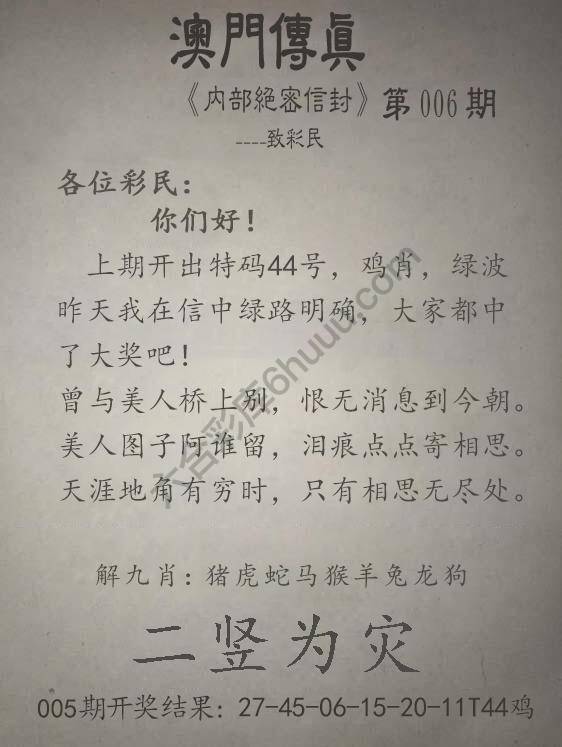 澳門傳眞
《内部絕密信封》第006期
----致彩民
各位彩民：
你们好！
上期开出特码44号，鸡肖，绿波
昨天我在信中绿路明确，大家都中
了大奖吧！
曾与美人桥上别，恨无消息到今朝。
美人图子阿谁留，泪痕点点寄相思。
天涯地角有穷时，只有相思无尽处。
解九肖：猪虎蛇马猴羊兔龙狗
二竖为灾
005期开奖结果：27-45-06-15-20-11T44鸡
六合彩库6huuu.com